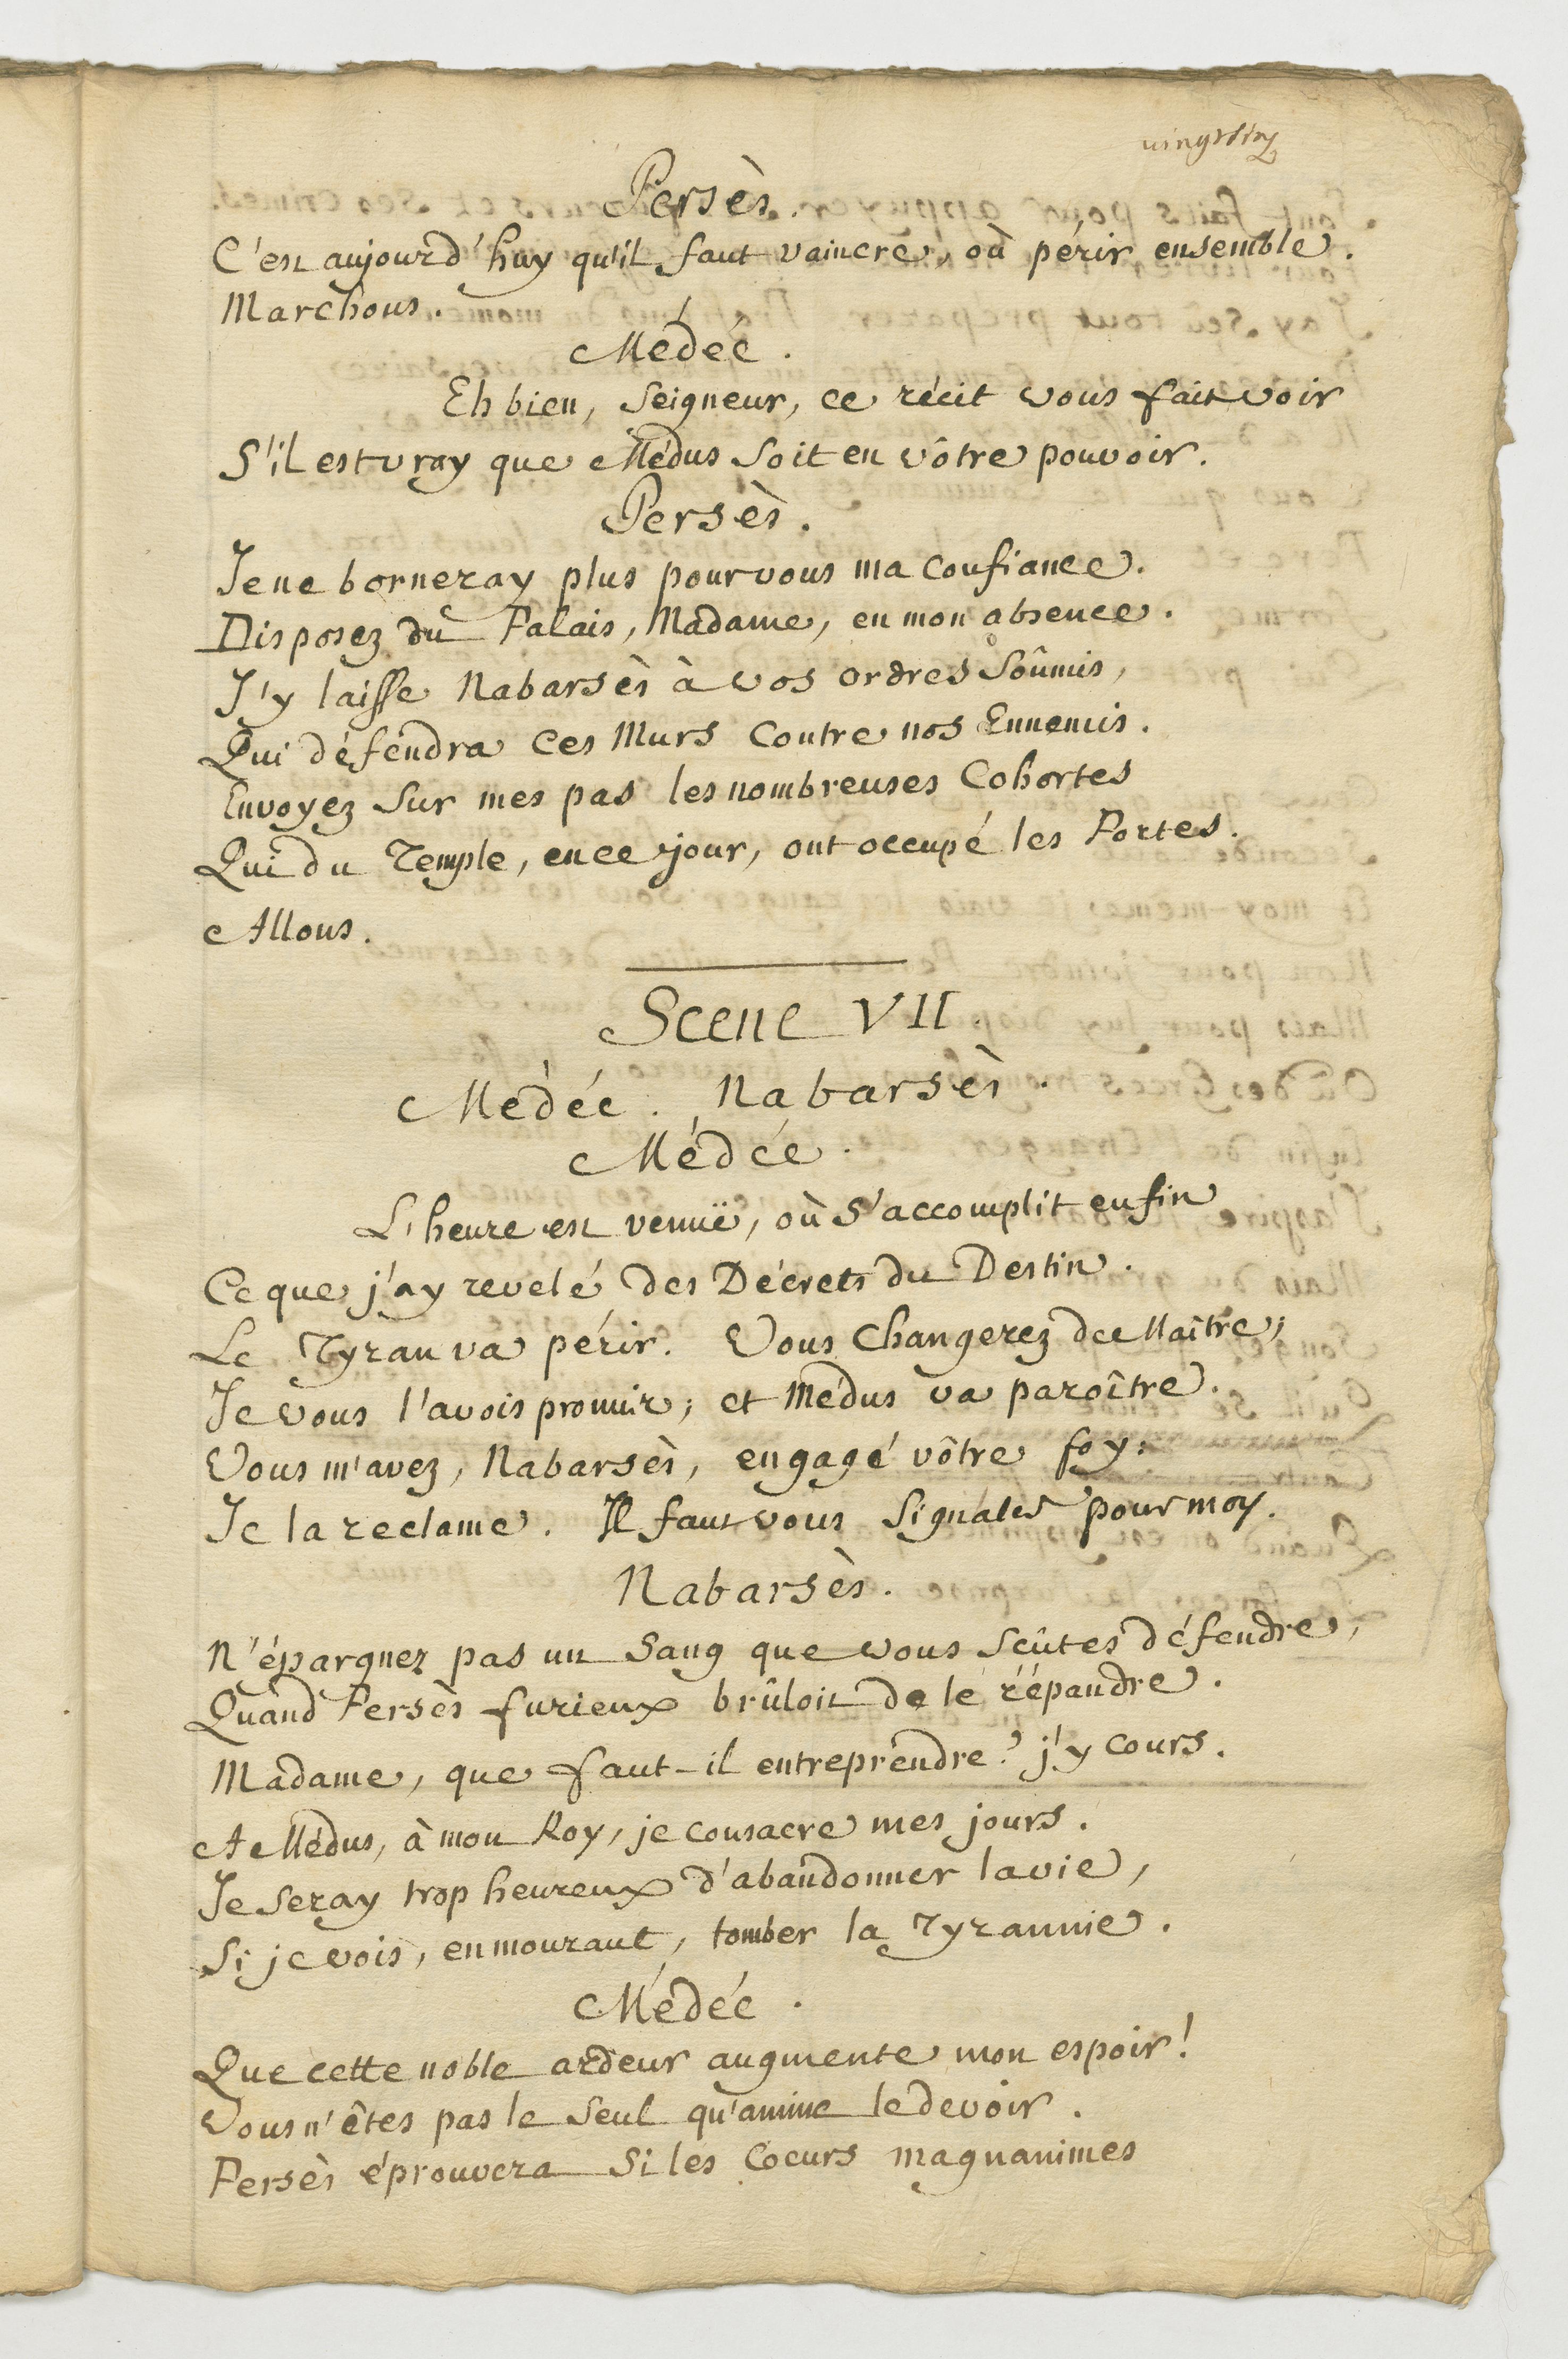 Persès.
C'est aujourd'huy qu'il faut vaincre, où périr ensemble.
Marchons.
Médée.
Eh bien, Seigneur, ce récit vous fait voir
S'il est vray que Médus soit en vôtre pouvoir.
Persès.
Je ne borneray plus pour vous ma confiance.
Disposez du Palais, Madame, en mon absence.
J'y laisse Nabarsès à vos ordres soûmis,
Qui défendra ces Murs contre nos Ennemis.
Envoyez sur mes pas les nombreuses Cohortes
Qui du Temple, en ce jour, ont occupé les Portes.
Allons.
Scene VII.
Médée. Nabarsès.
Médée.
L'heure est venuë, où s'accomplit enfin
Ce que j'ay revelé des Décrets du Destin.
Le Tyran va périr. Vous changerez de Maître;
Je vous l'avois promis; et Médus va paroître.
Vous m'avez, Nabarsès, engagé vôtre foy:
Je la reclame. Il faut vous signaler pour moy.
Nabarsès.
N'épargnez pas un sang que vous sçûtes défendre,
Quand Persès furieux brûloit de le répandre.
Madame, que faut-il entreprendre? j'y cours.
A Médus, à mon Roy, je consacre mes jours.
Je seray trop heureux d'abandonner la vie,
Si je vois, en mourant, tomber la Tyrannie.
Médée.
Que cette noble ardeur augmente mon espoir!
Vous n'êtes pas le seul qu'anime le devoir.
Persès éprouvera si les Coeurs magnanimes